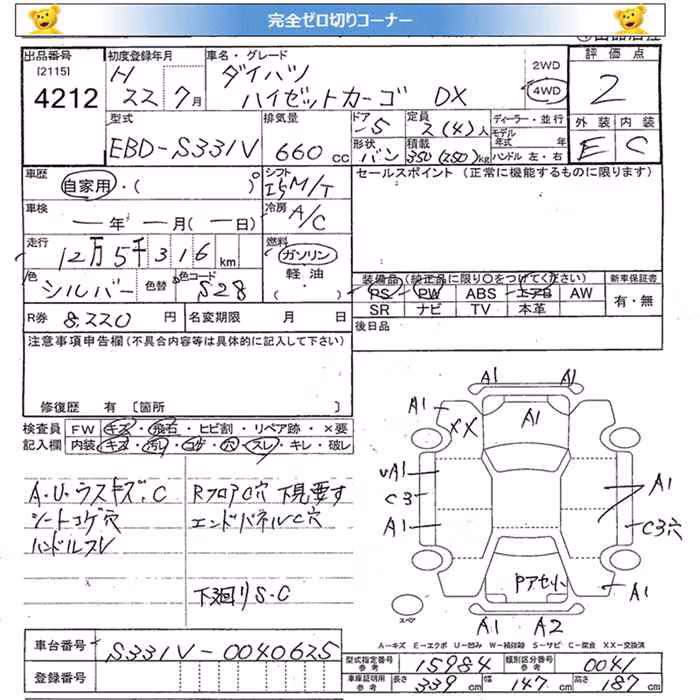 完全ゼロ切りコーナー
出品番号 初度登録年月 車名・グレード 評価点
[2115] H ダイハツ 2WD
4212 22 7月 ハイゼットカーゴ DX 4WD 2
型式 排気量 ドア 定員 ディーラー・並行 外装 内装
EBD-S331V 660 cc -5 2(4)人 モデル年式 年 E C
形状 バン 積載 350(250)kg ハンドル 左・右
車歴 シフト セールスポイント (正常に機能するものに限ります)
自家用・( )
車検 冷房
ー年ー月(ー日) A/C
走行 燃料
12万5千316km ガソリン
色 シルバー 色替 色コード S28 軽油
( )
装備品(純正品に限り○をつけてください) 新車保証書
PS PW ABS エアB AW 有・無
SR ナビ TV 本革
R券 8,220円 名変期限 月 日 後日品
注意事項申告欄(不具合内容等は具体的に記入して下さい)
修復歴 有 [箇所 ]
検査員 FW キズ・飛石・ヒビ割・リペア跡・×要
記入欄 内装 キズ・汚レ・コゲ・穴・スレ・キレ・破レ
A・U・ウスキズ・C RフロアC穴 下見要す
シートコゲ穴 エンドパネルC穴
ハンドルスレ
下廻りS・C
A1 A1
A1 XX A1
A1 A1
C3
A1 C3穴
Pアセリ A1
スペア
A1 A2
A-キズ E-エクボ U-凹み W-補修跡 S-サビ C-腐食 XX-交換済
車台番号 S331V-0040625
型式指定番号 参考 15984 類別区分番号 参考 0041
登録番号 車庫証明用 参考 長さ 339cm 幅 147cm 高さ 187cm